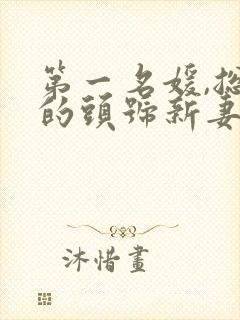 第一名媛,总
的頭號新妻
沐惜畫